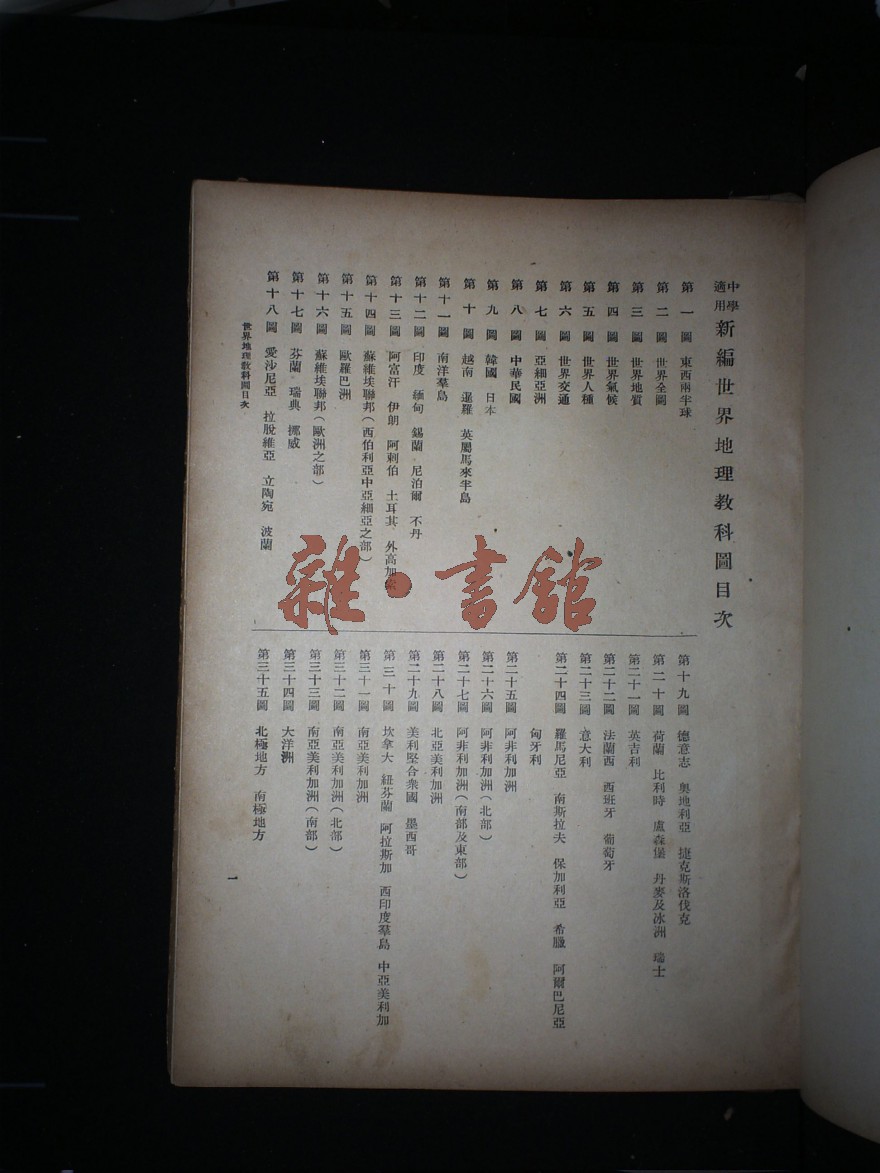 中學
適用
新編世界地理教科圖目次
第一圖 東西兩半球
第二圖 世界全圖
第三圖 世界地質
第四圖 世界氣候
第五圖 世界人種
第六圖 世界交通
第七圖 亞細亞洲
第八圖 中華民國
第九圖 韓國 日本
第十圖 越南 暹羅 英屬馬來半島
第十一圖 南洋羣島
第十二圖 印度 緬甸 錫蘭 尼泊爾 不丹
第十三圖 阿富汗 伊朗 阿剌伯 土耳其 外高加索
第十四圖 蘇維埃聯邦(西伯利亞中亞細亞之部)
第十五圖 歐羅巴洲
第十六圖 蘇維埃聯邦(歐洲之部)
第十七圖 芬蘭 瑞典 挪威
第十八圖 愛沙尼亞 拉脫維亞 立陶宛 波蘭
第十九圖 德意志 奧地利亞 捷克斯洛伐克
第二十圖 荷蘭 比利時 盧森堡 丹麥及冰洲 瑞士
第二十一圖 英吉利
第二十二圖 法蘭西 西班牙 葡萄牙
第二十三圖 意大利
第二十四圖 羅馬尼亞 南斯拉夫 保加利亞 希臘 阿爾巴尼亞
匈牙利
第二十五圖 阿非利加洲
第二十六圖 阿非利加洲(北部)
第二十七圖 阿非利加洲(南部及東部)
第二十八圖 北亞美利加洲
第二十九圖 美利堅合衆國 墨西哥
第三十圖 坎拿大 紐芬蘭 阿拉斯加 西印度羣島 中亞美利加
第三十一圖 南亞美利加洲
第三十二圖 南亞美利加洲(北部)
第三十三圖 南亞美利加洲(南部)
第三十四圖 大洋洲
第三十五圖 北極地方 南極地方
世界地理教科圖目次
一
雜·書館